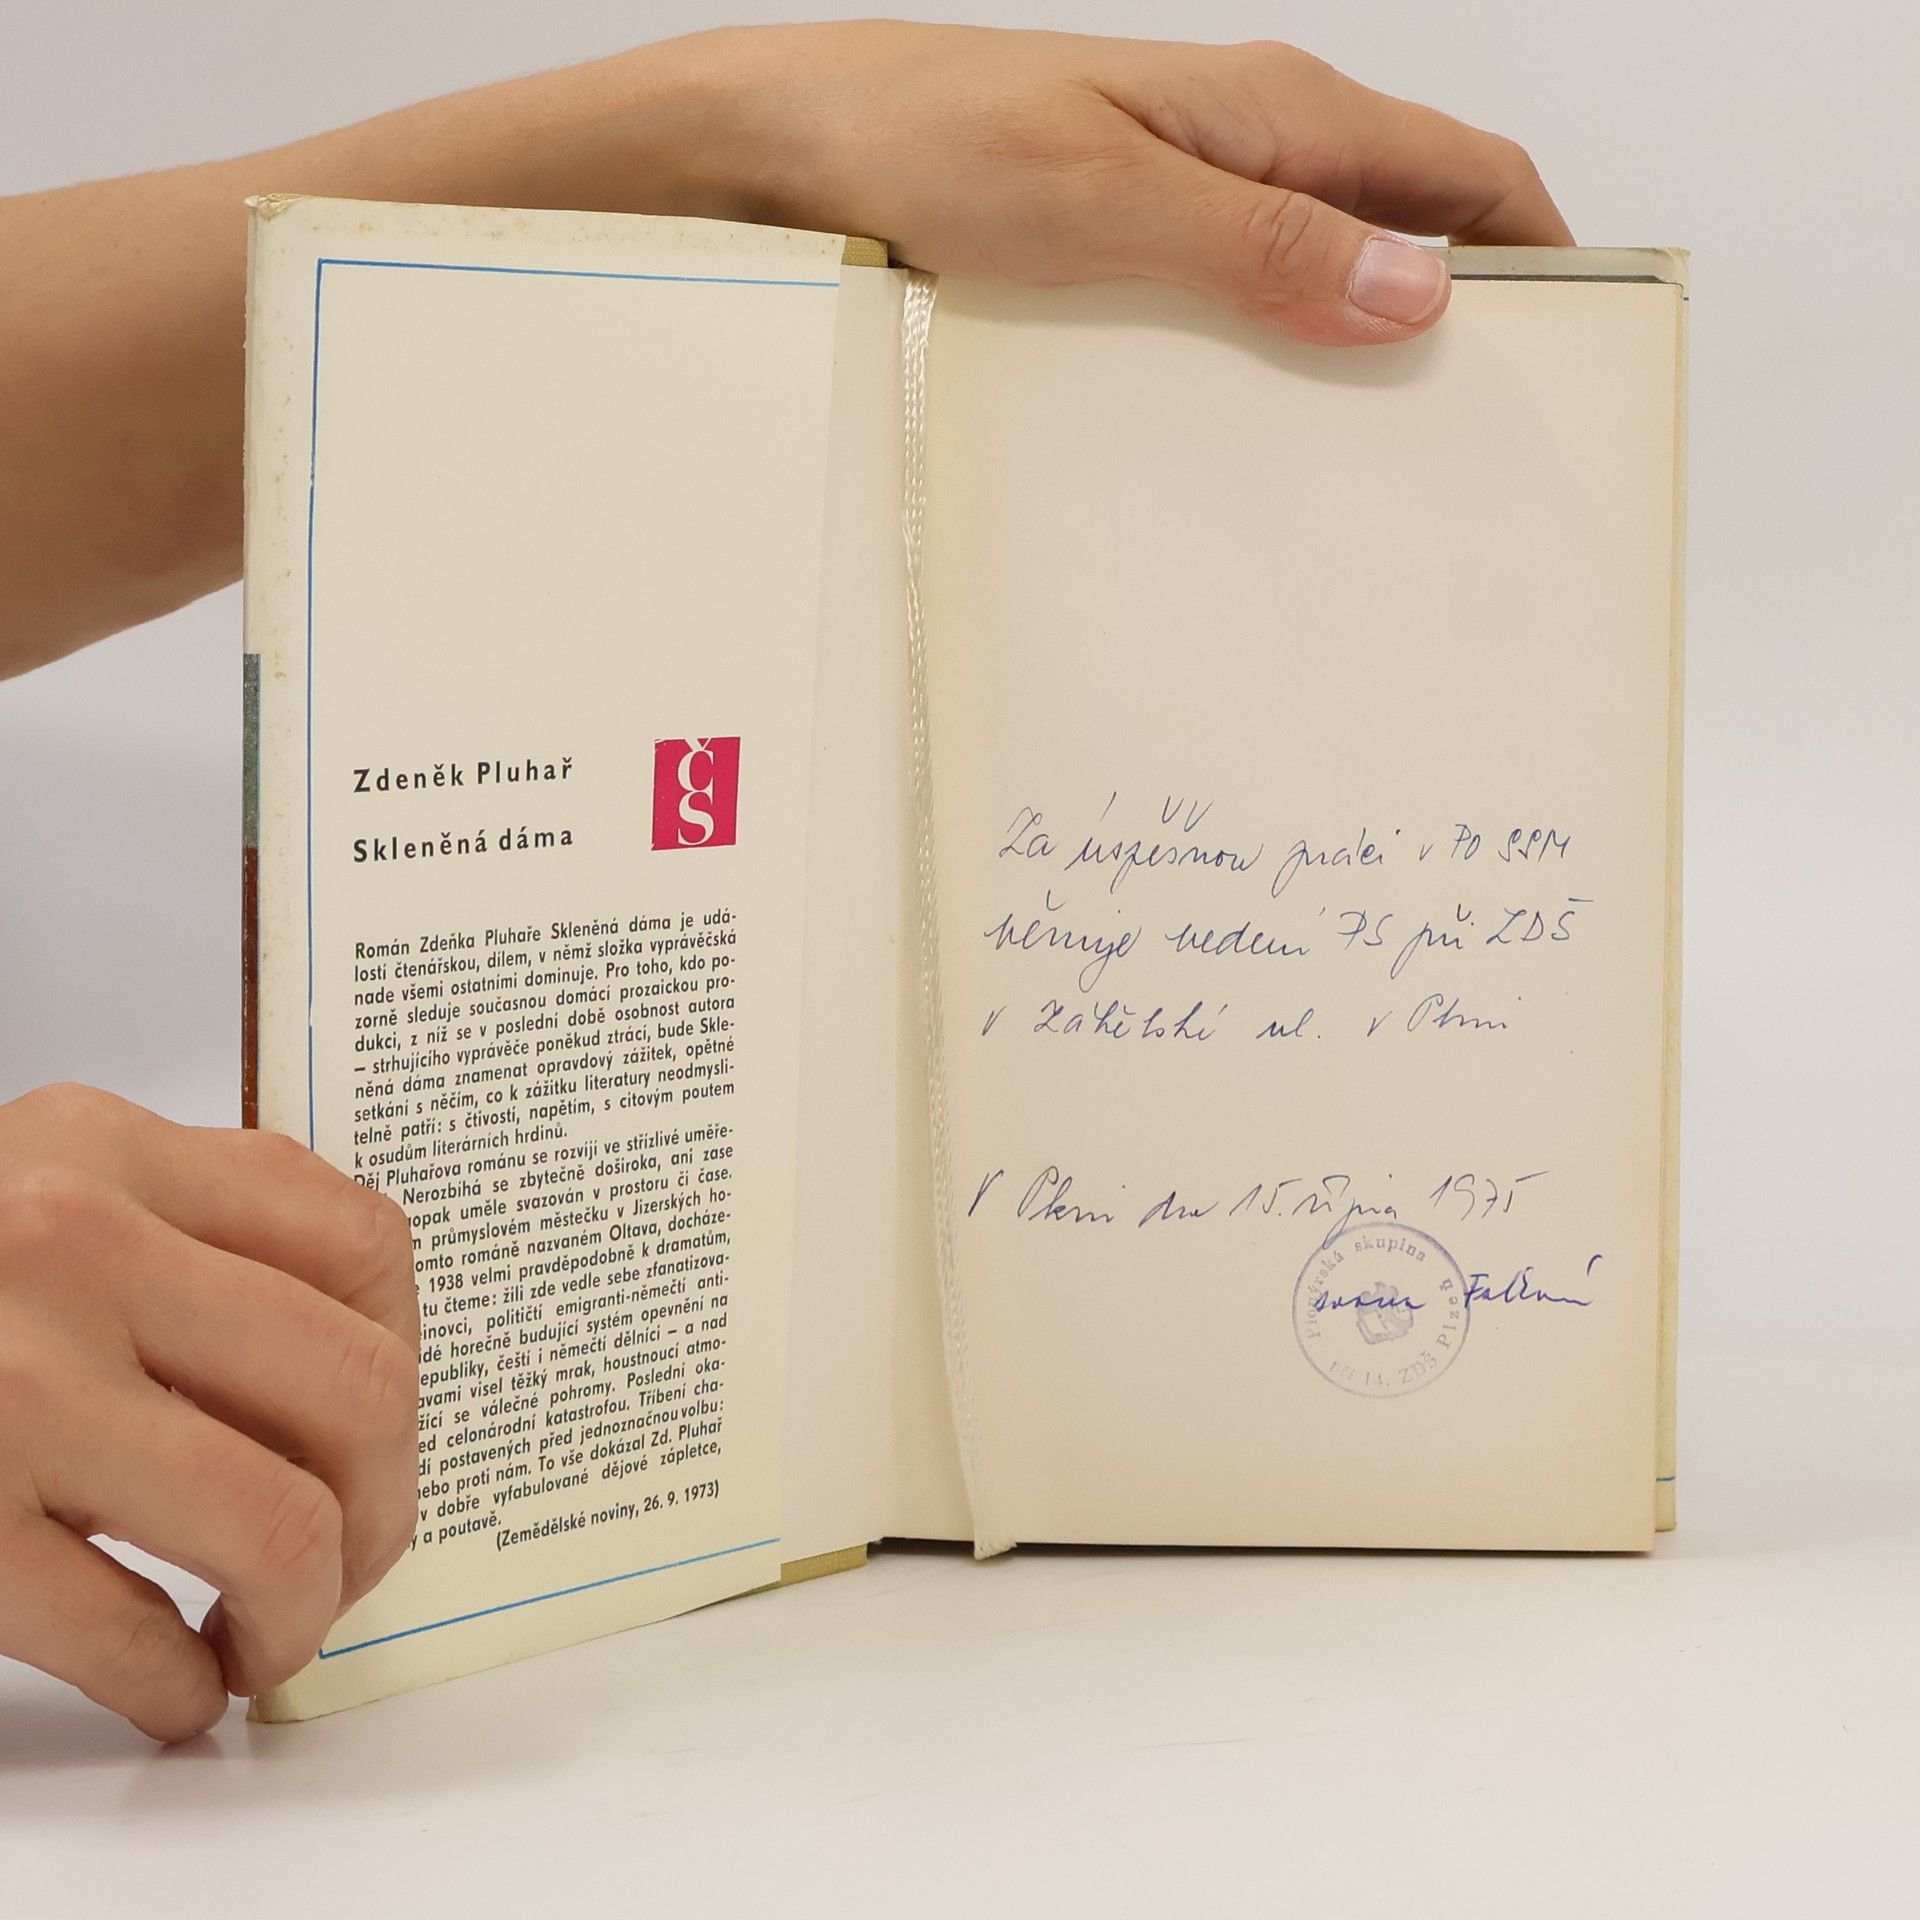 Zdeněk Pluhař
ČS
Skleněná dáma
Román Zdeňka Pluhaře Skleněná dáma je udá-
lostí čtenářskou, dílem, v němž složka vyprávěčská
nade všemi ostatními dominuje. Pro toho, kdo po-
zorně sleduje současnou domácí prozaickou pro-
dukci, z níž se v poslední době osobnost autora
– strhujícího vyprávěče poněkud ztrácí, bude Skle-
něná dáma znamenat opravdový zážitek, opětné
setkání s něčím, co k zážitku literatury neodmysli-
telně patří: s čtivostí, napětím, s citovým poutem
k osudům literárních hrdinů.
Děj Pluhařova románu se rozvíjí ve střízlivé uměře-
Nerozbíhá se zbytečně doširoka, ani zase
aopak uměle svazován v prostoru či čase.
m průmyslovém městečku v Jizerských ho-
omto románě nazvaném Oltava, docháze-
e 1938 velmi pravděpodobně k dramatům,
tu čteme: žili zde vedle sebe zfanatizova-
einovci, političtí emigranti-němečtí anti-
idé horečně budující systém opevnění na
epubliky, čeští i němečtí dělníci – a nad
avami visel těžký mrak, houstnoucí atmo-
žící se válečné pohromy. Poslední oka-
ed celonárodní katastrofou. Tříbení cha-
dí postavených před jednoznačnou volbu:
nebo proti nám. To vše dokázal Zd. Pluhař
v dobře vyfabulované dějové zápletce,
ý a poutavě.
(Zemědělské noviny, 26. 9. 1973)
Za úspěšnou práci v PO SSM
věnuje vedení PS při ZDŠ
v Zábělské ul. v Plzni
V Plzni dne 15. října 1975
Pionýrská skupina
při 14. ZDŠ Plzeň